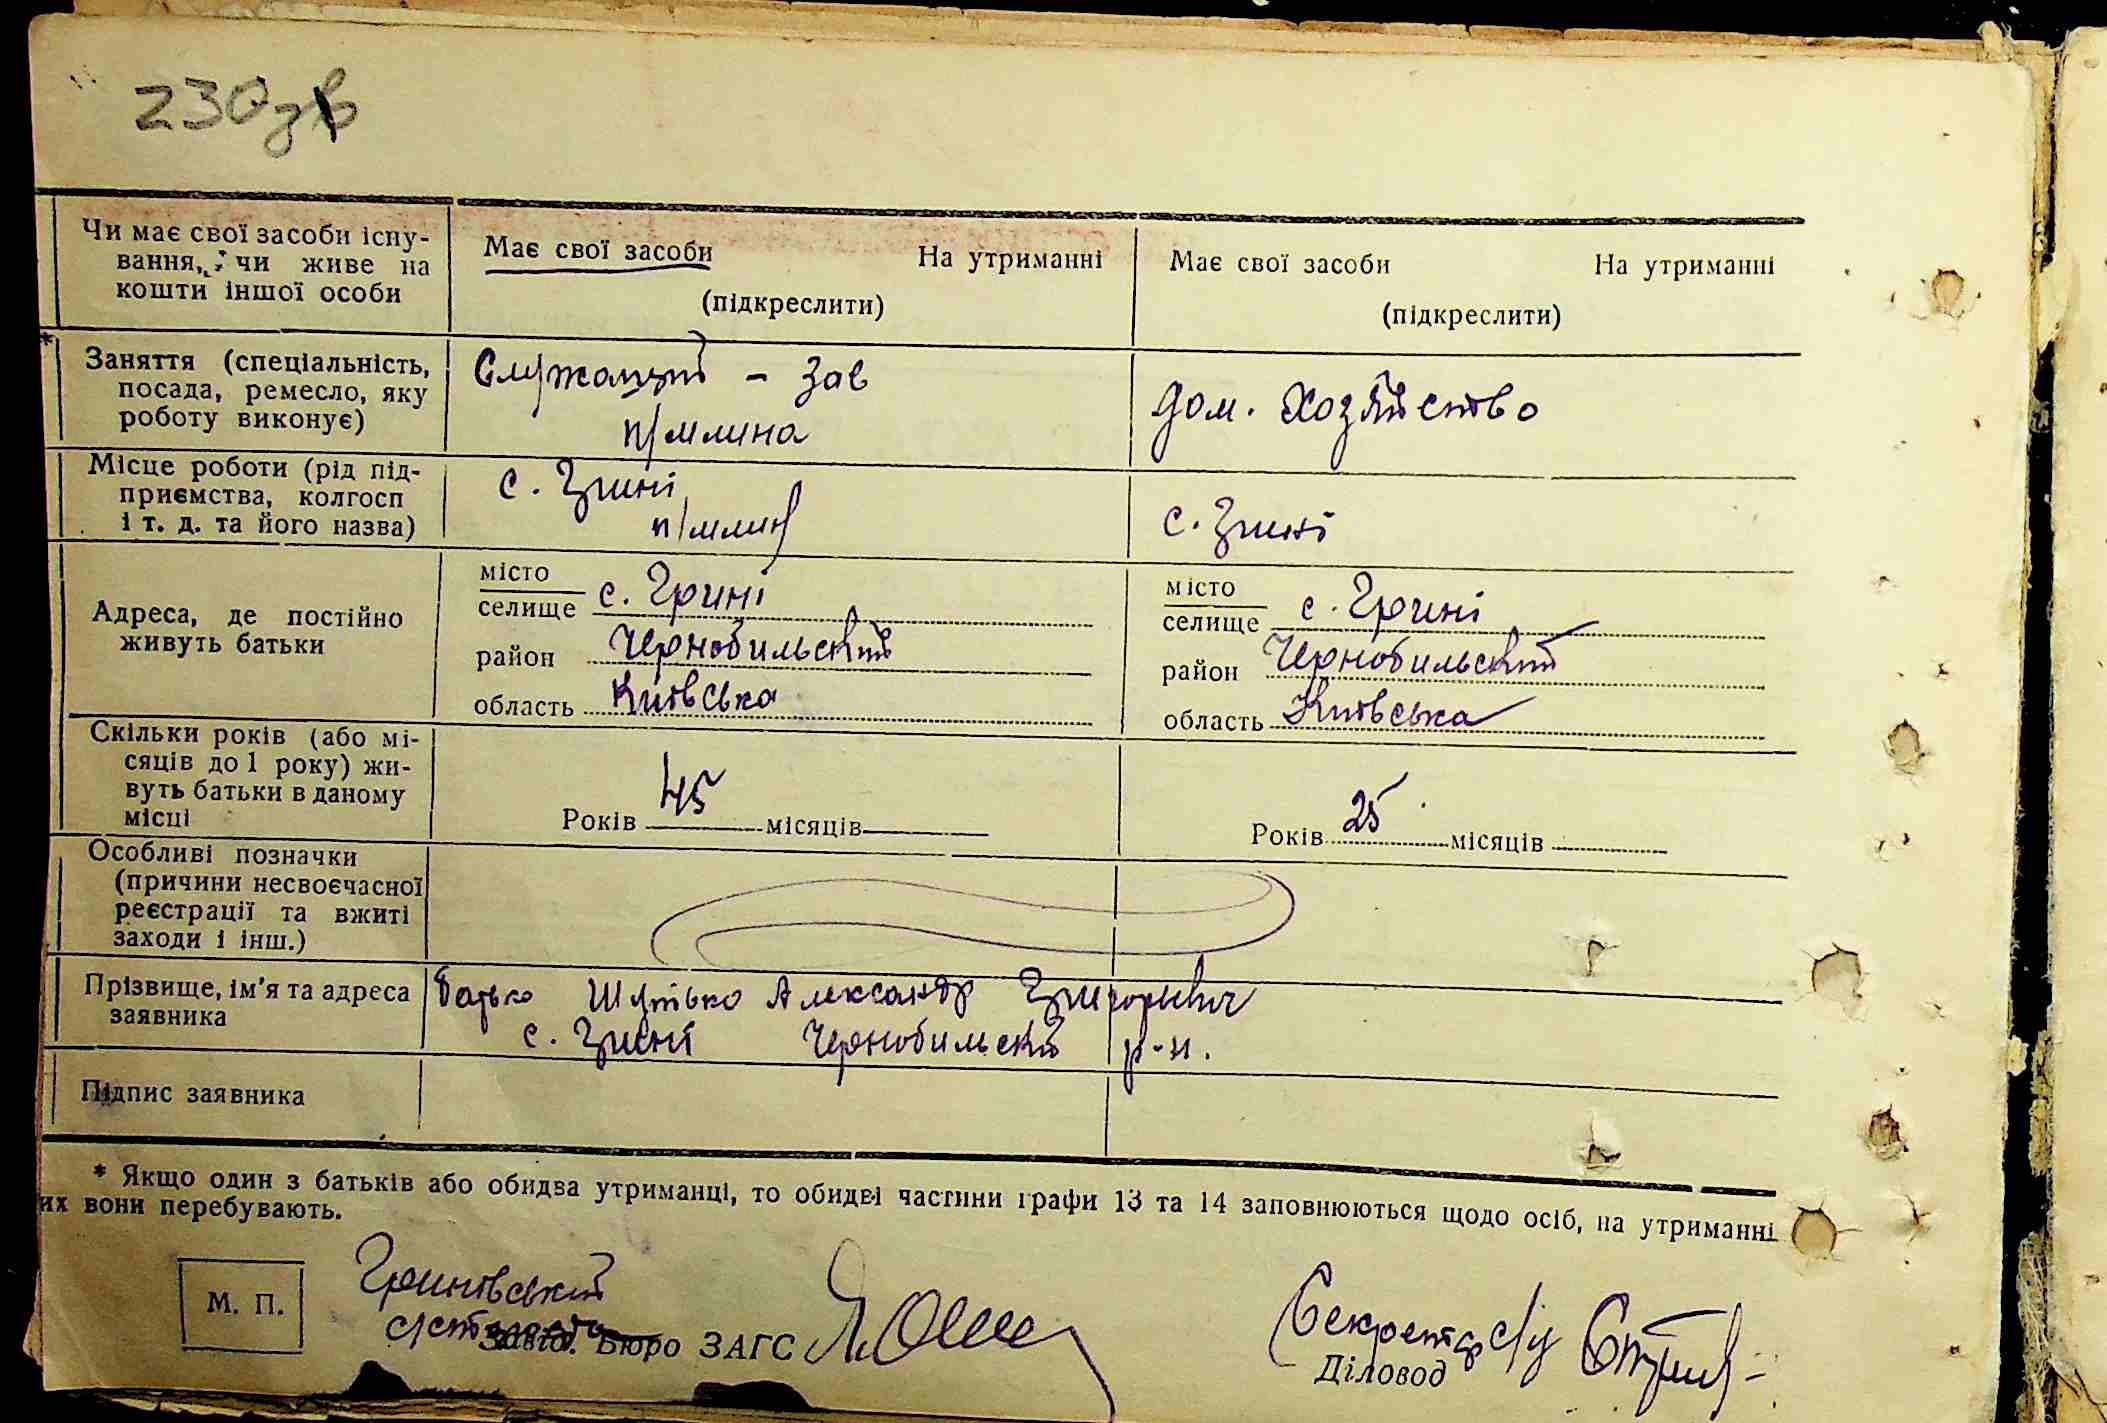 230зв
Чи має свої засоби існу-
вання, чи живе на
кошти іншої особи
Має свої засоби На утриманні
(підкреслити)
Має свої засоби На утриманні
(підкреслити)
* Заняття (спеціальність,
посада, ремесло, яку
роботу виконує)
Служащий - зав
п/млина
дом. хозяйство
Місце роботи (рід під-
приємства, колгосп
і т. д. та його назва)
с. Грині
п/млин
с. Грині
Адреса, де постійно
живуть батьки
місто
селище с. Грині
район Чернобильский
область Київська
місто
селище с. Грині
район Чернобильский
область Київська
Скільки років (або мі-
сяців до 1 року) жи-
вуть батьки в даному
місці
Років 45 місяців
Років 25 місяців
Особливі позначки
(причини несвоєчасної
реєстрації та вжиті
заходи і інш.)
Прізвище, ім'я та адреса
заявника
батько Шутько Александр Григорьевич
с. Грині Чернобильский р-н.
Підпис заявника
* Якщо один з батьків або обидва утриманці, то обидві частини графи 13 та 14 заповнюються щодо осіб, на утриманні
их вони перебувають.
М. П.
Гринівський
Завід. Бюро ЗАГС
Секретар с/р
Діловод